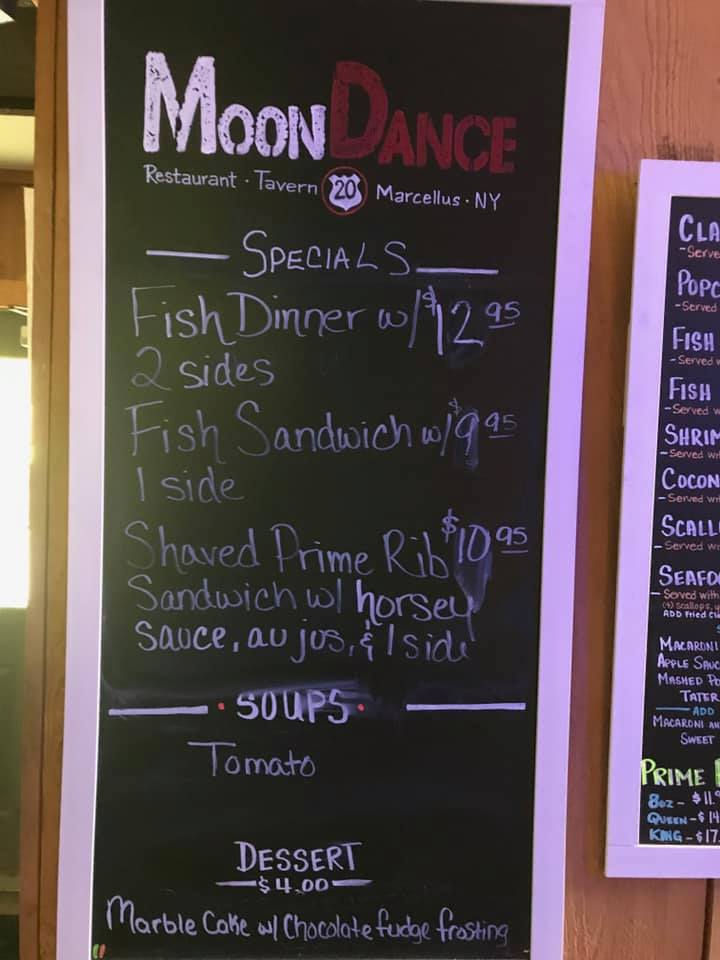 MOONDANCE
Restaurant · Tavern 20 Marcellus · NY
SPECIALS
Fish Dinner w/ $12.95
2 sides
Fish Sandwich w/ $9.95
1 side
Shaved Prime Rib $10.95
Sandwich w/ horsey
sauce, au jus, & 1 side
• SOUPS •
Tomato
DESSERT
$4.00
Marble Cake w/ Chocolate fudge frosting
-Served
-Served
FISH
-Served
FISH
-Served
-Served
-Served
-Served
-Served with
(4) Scallops,
ADD Fried
MACARONI
APPLE
MASHED
TATER
ADD
MACARONI
SWEET
PRIME
8oz - $11.
QUEEN - $14
KING - $17.